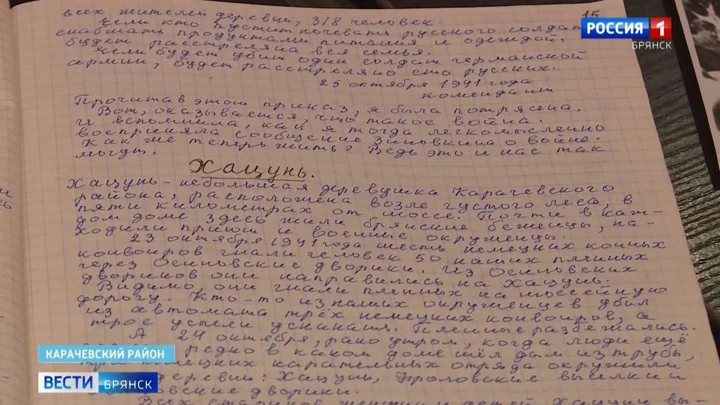 всех жителей деревни, 318 человек.
Если кто пустит ночевать русского солдата
снабжать продуктами питания и одеждой,
будет расстреляна вся семья.
Если будет убит один солдат германской
армии, будет расстреляно сто русских.
25 октября 1941 года
комендант
15
РОССИЯ 1
БРЯНСК
Прочитав этот приказ, я была потрясена.
Вот, оказывается, что такое война.
И вспомнила, как я тогда легкомысленно
восприняла сообщение о войне.
Как же теперь жить? Ведь это и нас так
могут.
Хацунь.
Хацунь - небольшая деревушка Карачевского
района, расположена возле густого леса, в
пяти километрах от шоссе. Почти в каж-
дом доме здесь жили брянские беженцы, на-
ходили приют и военные окруженцы.
23 октября 1941 года шесть немецких конных
конвоиров гнали человек 50 наших пленных
через Осиновские дворики. Из Осиновских
двориков они направились на Хацунь.
Видимо, они гнали пленных на шоссейную
дорогу. Кто-то из наших окруженцев убил
из автомата трёх немецких конвоиров, а
трое успели ускакать. Пленные разбежались.
А 24 октября, рано утром, когда люди ещё
редко в каком доме шёл дым из трубы,
немецких карательных отряда окружили
деревни: Хацунь, Фроловские выселки и
дворики.
Всех стариков, женщин и детей Хацуни вы-
КАРАЧЕВСКИЙ РАЙОН
ВЕСТИ БРЯНСК